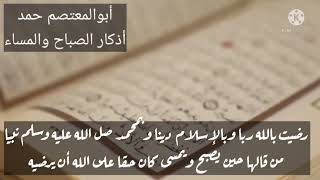 أبوالمعتصم حمد
أذكار الصباح والمساء
رضيت بالله ربا وبالإسلام دينا وبمحمد صل الله علية وسلم نبيا
من قالها حين يصبح ويمسى كان حقا على الله أن يرضيه